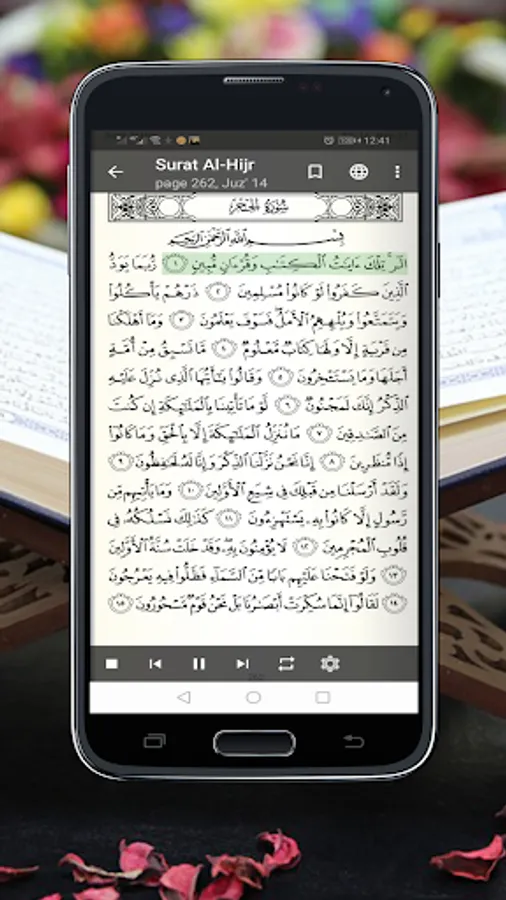 12:41
Surat Al-Hijr
page 262, Juz' 14
سُورَةُ الحِجْرِ
بِسْمِ اللَّهِ الرَّحْمَٰنِ الرَّحِيمِ
الٓرۚ تِلْكَ ءَايَٰتُ ٱلْكِتَٰبِ وَقُرْءَانٍ مُّبِينٍ ١ رُّبَمَا يَوَدُّ
ٱلَّذِينَ كَفَرُوا۟ لَوْ كَانُوا۟ مُسْلِمِينَ ٢ ذَرْهُمْ يَأْكُلُوا۟
وَيَتَمَتَّعُوا۟ وَيُلْهِهِمُ ٱلْأَمَلُ ۖ فَسَوْفَ يَعْلَمُونَ ٣ وَمَآ أَهْلَكْنَا
مِن قَرْيَةٍ إِلَّا وَلَهَا كِتَابٌ مَّعْلُومٌ ٤ مَّا تَسْبِقُ مِنْ أُمَّةٍ
أَجَلَهَا وَمَا يَسْتَـْٔخِرُونَ ٥ وَقَالُوا۟ يَٰٓأَيُّهَا ٱلَّذِى نُزِّلَ عَلَيْهِ
ٱلذِّكْرُ إِنَّكَ لَمَجْنُونٌ ٦ لَّوْ مَا تَأْتِينَا بِٱلْمَلَٰٓئِكَةِ إِن كُنتَ
مِنَ ٱلصَّٰدِقِينَ ٧ مَا نُنَزِّلُ ٱلْمَلَٰٓئِكَةَ إِلَّا بِٱلْحَقِّ وَمَا كَانُوٓا۟
إِذًا مُّنظَرِينَ ٨ إِنَّا نَحْنُ نَزَّلْنَا ٱلذِّكْرَ وَإِنَّا لَهُۥ لَحَٰفِظُونَ ٩
وَلَقَدْ أَرْسَلْنَا مِن قَبْلِكَ فِى شِيَعِ ٱلْأَوَّلِينَ ١٠ وَمَا يَأْتِيهِم مِّن
رَّسُولٍ إِلَّا كَانُوا۟ بِهِۦ يَسْتَهْزِءُونَ ١١ كَذَٰلِكَ نَسْلُكُهُۥ فِى
قُلُوبِ ٱلْمُجْرِمِينَ ١٢ لَا يُؤْمِنُونَ بِهِۦ ۖ وَقَدْ خَلَتْ سُنَّةُ ٱلْأَوَّلِينَ
١٣ وَلَوْ فَتَحْنَا عَلَيْهِم بَابًا مِّنَ ٱلسَّمَآءِ فَظَلُّوا۟ فِيهِ يَعْرُجُونَ
١٤ لَقَالُوٓا۟ إِنَّمَا سُكِّرَتْ أَبْصَٰرُنَا بَلْ نَحْنُ قَوْمٌ مَّسْحُورُونَ ١٥